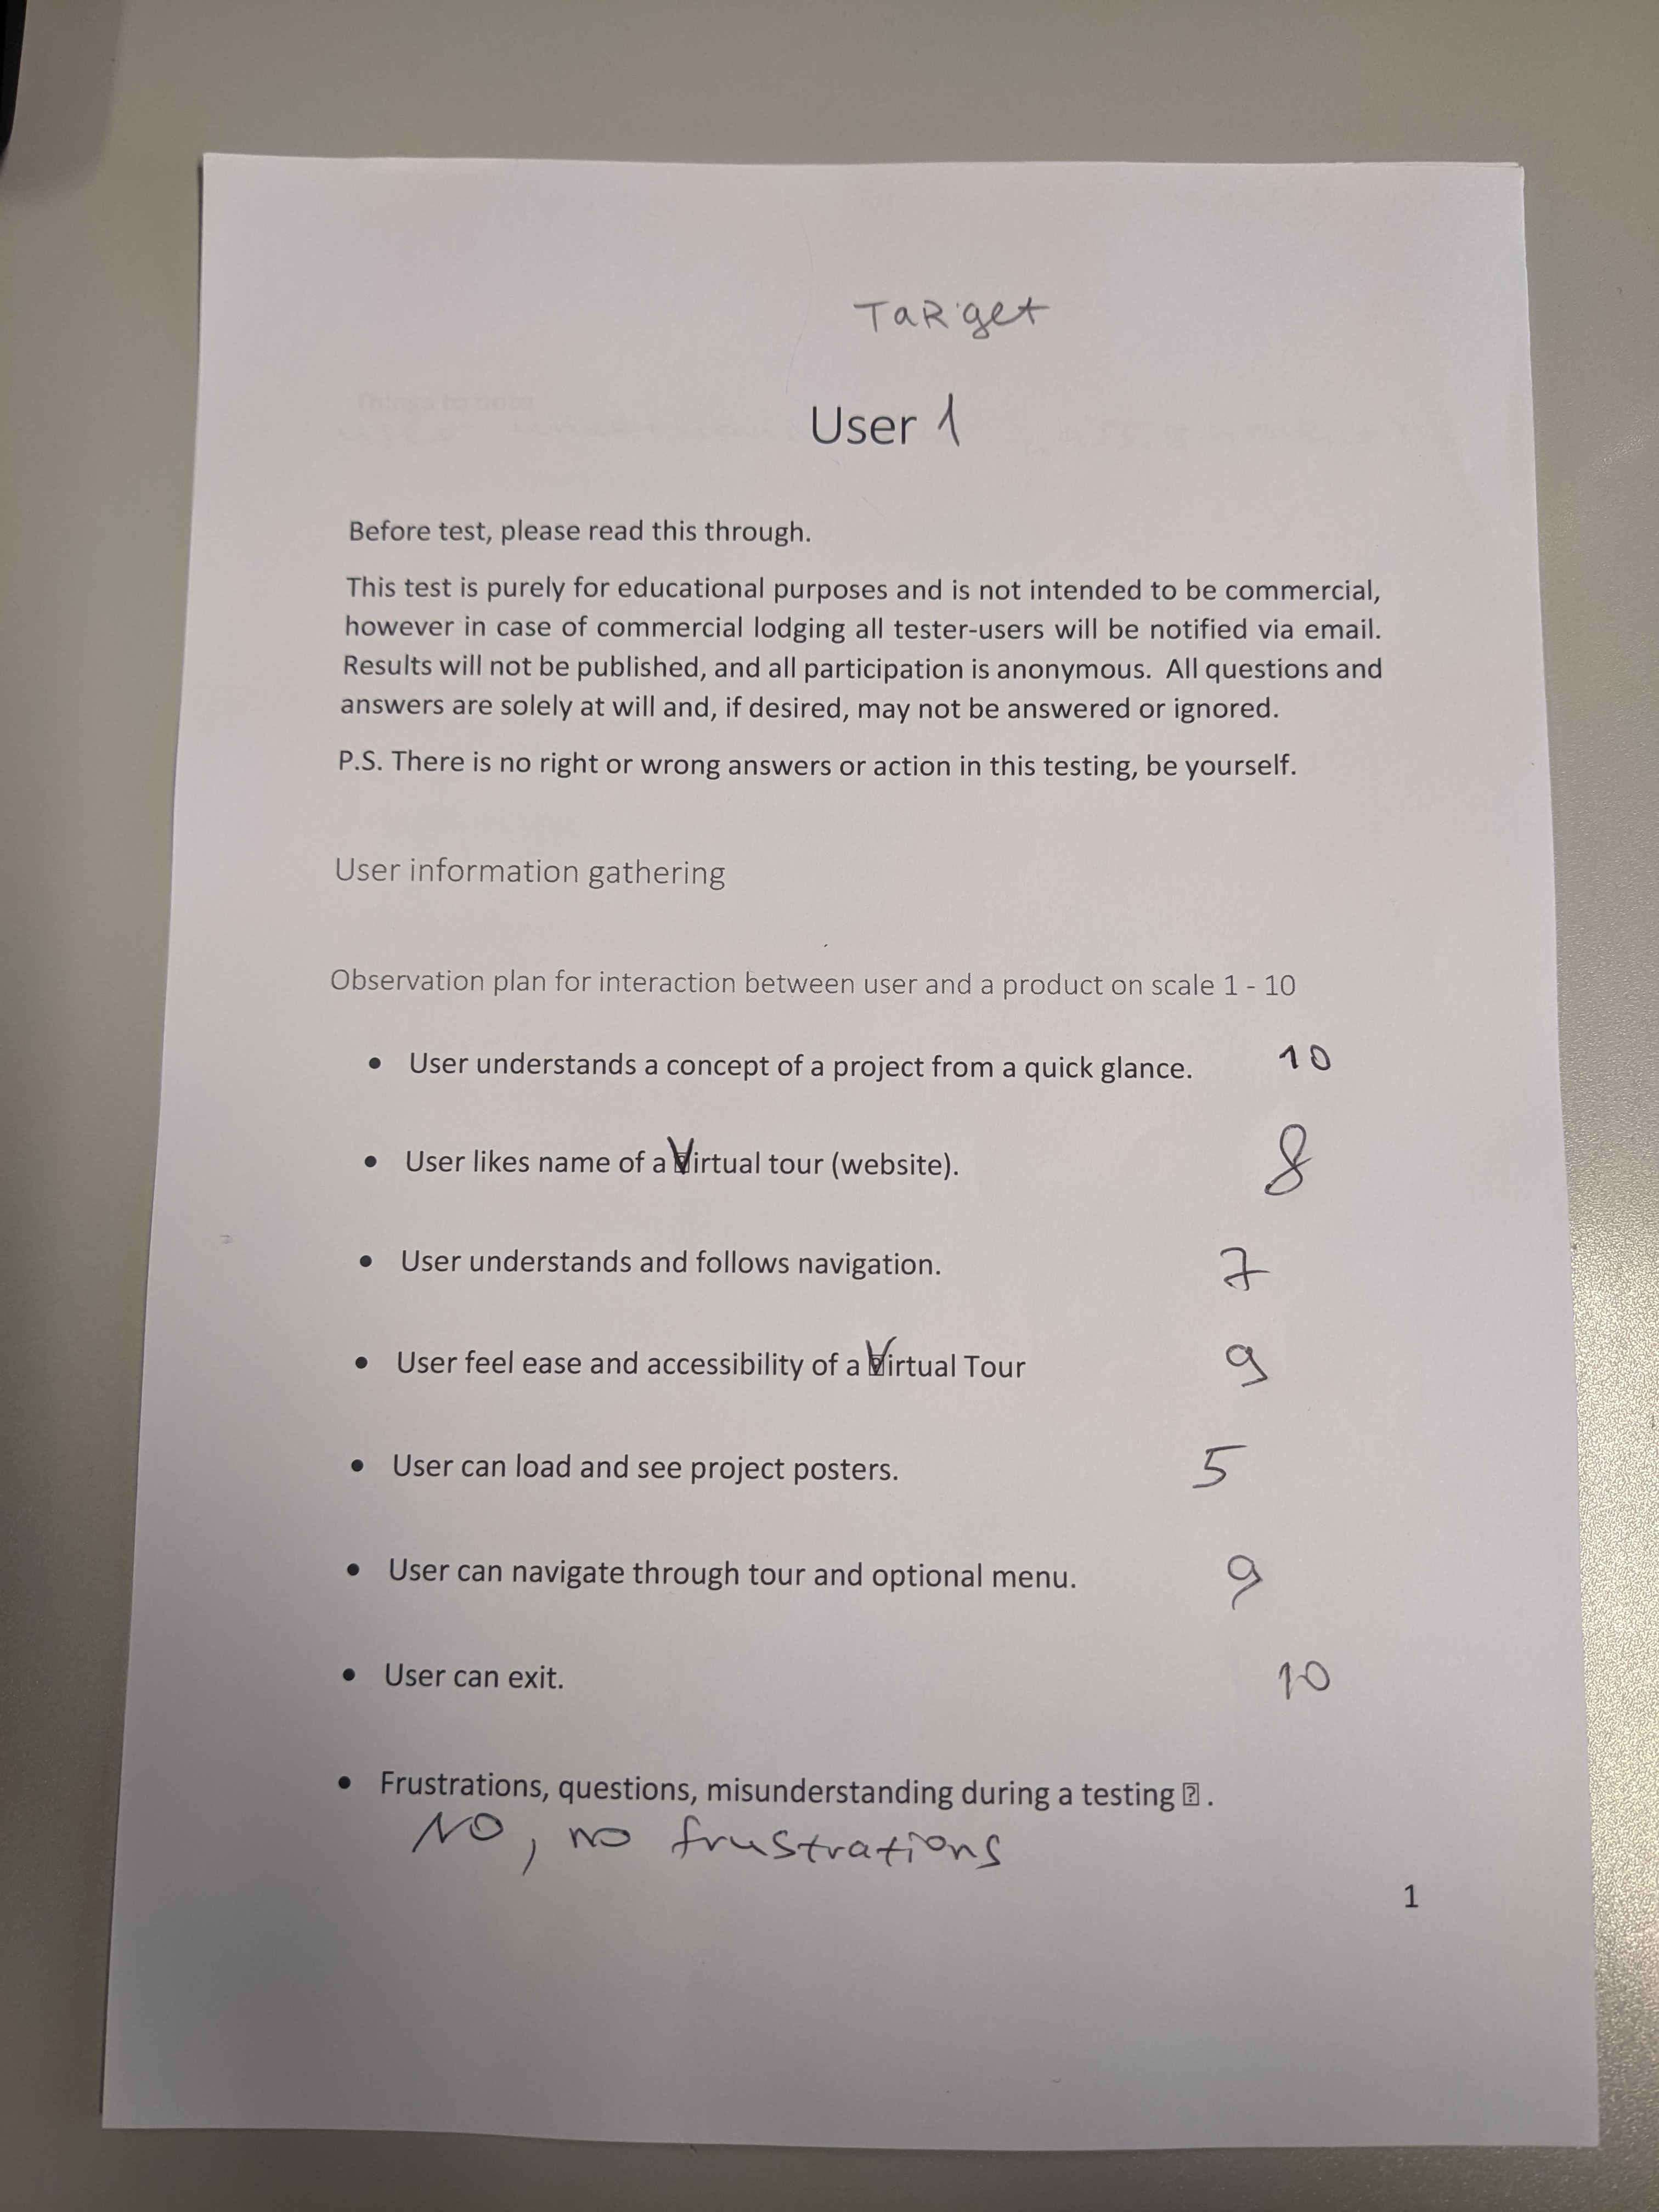 TaRget
User 1
Before test, please read this through.
This test is purely for educational purposes and is not intended to be commercial,
however in case of commercial lodging all tester-users will be notified via email.
Results will not be published, and all participation is anonymous. All questions and
answers are solely at will and, if desired, may not be answered or ignored.
P.S. There is no right or wrong answers or action in this testing, be yourself.
User information gathering
Observation plan for interaction between user and a product on scale 1 - 10
• User understands a concept of a project from a quick glance. 10
• User likes name of a Virtual tour (website). 8
• User understands and follows navigation. 7
• User feel ease and accessibility of a Virtual Tour 9
• User can load and see project posters. 5
• User can navigate through tour and optional menu. 9
• User can exit. 10
• Frustrations, questions, misunderstanding during a testing ⍰.
NO, no frustrations
1